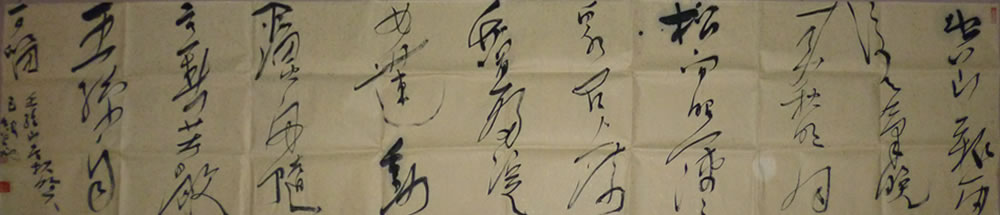 空山新雨
後天氣晚
来秋明月
松间照清
泉石上流
竹喧歸浣
女蓮動
下漁舟隨
意春芳歇
王孫自
可留
王維山居秋暝